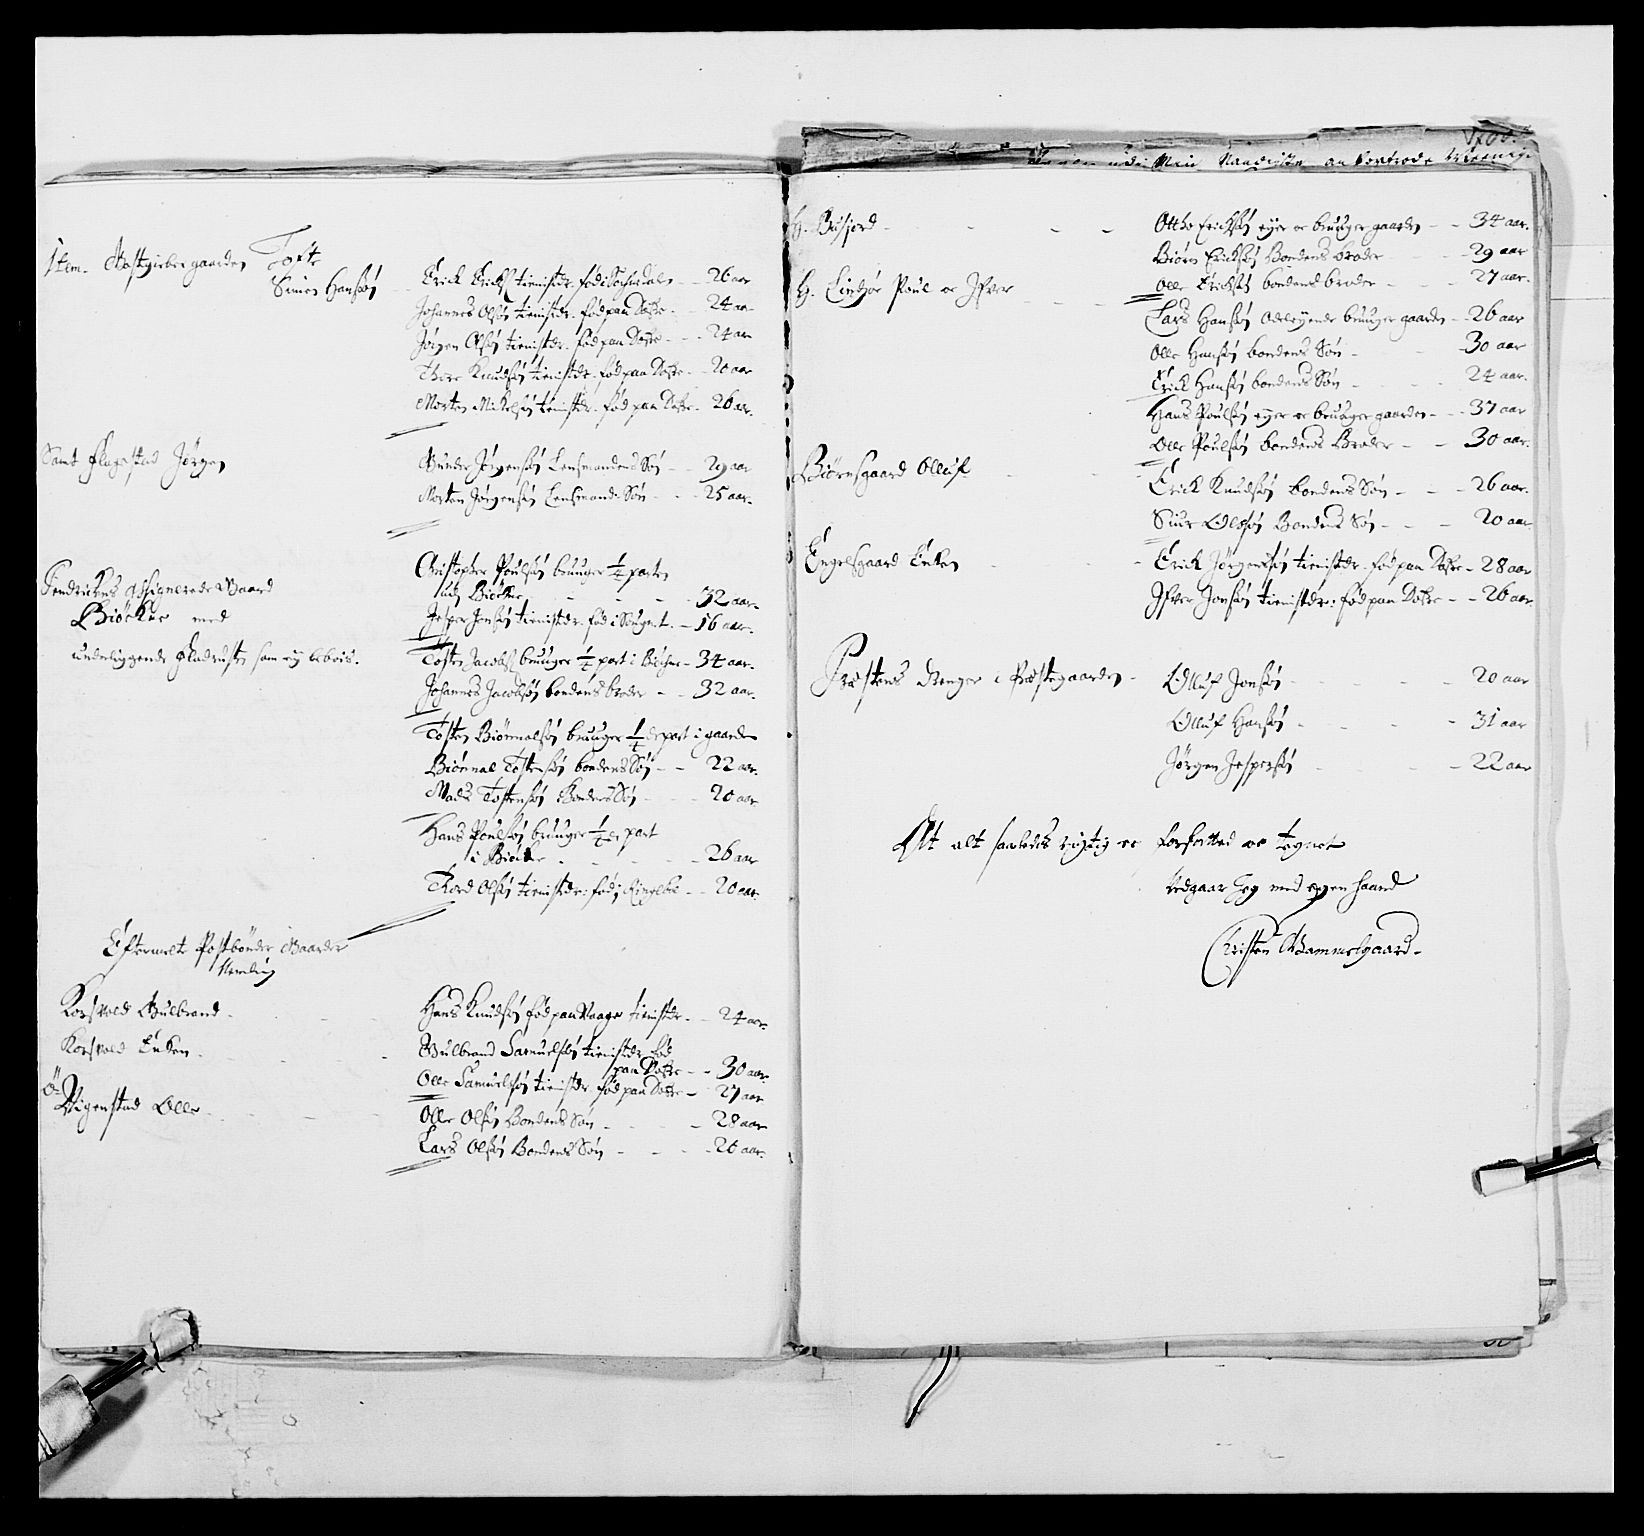 Item. Gastgieber gaarden Tofte
Simen Hansøn
Erick Ericks: tienistdr. fød i Sochnedalen - 26 aar
Johannes Olsøn tienistdr. fød paa Dofre - 24 aar
Jørgen Olsøn tienistdr. fød paa Dofre - 24 aar
Thore Knudsøn tienistdr. fød paa Dofre - 20 aar
Morten Mickelsøn tienistdr. fød paa Dofre - 26 aar.
Samt Flugestad Jørgen
Gunder Jørgensøn Lensmandens Søn - 29 aar
Morten Jørgensøn Lensmands Søn - 25 aar.
Fendrickens Assignerede Gaard
Biöckne med
underliggende Ødeness som ej beboes.
Christopher Poulsøn bruuger 1/4 parten
udj Biöckne - 32 aar.
Jesper Jonsøn tienistdr. fød i Sougnet - 16 aar.
Tosten Jacobs: bruuger 1/4 part i Biöckne - 34 aar.
Johannes Jacobsøn bondens broder - 32 aar.
Tosten Biönnalsøn bruuger 1/4 de part i gaarden
Biönnal Tostensøn bondens Søn - 22 aar.
Mads Tostensøn Bondens Søn - 20 aar
Hans Poulsøn bruuger 1/4 de part
i Biöckne - 26 aar
Thord Olsøn tienistdr. fød i Ringeboe - 20 aar.
Eftermelte Postbønder Gaarder
Nemlig
Korsvold Gulbrand
Hans Knudsøn fød paa Vaage tienistdr. - 24 aar.
Korsvold Enken
Gulbrand Samuelsøn tienistdr. fød
paa Dofre - 30 aar
Olle Samuelsøn tienistdr. fød paa Dofre - 27 aar
Ö: Vigenstad Olle
Olle Olsøn Bondens Søn - 28 aar
Lars Olsøn Bondens Søn - 20 aar.
1700.
H. Busjord
Otthe Ericksøn ejer oc bruuger gaarden - 34 aar.
Biørn Ericksøn Bondens broder - 29 aar
Olle Ericksøn bondens broder - 27 aar.
H. Lindsöe Poul oc Jfver
Lars Hansøn Odelejende bruuger gaarden - 26 aar
Olle Hansøn bondens Søn - 30 aar
Erick Hansøn bondens Søn - 24 aar.
Hans Poulsøn ejer oc bruuger gaarden - 37 aar
Olle Poulsøn bondens Broder - 30 aar.
Biörnsgaard Olluf
Erick Knudsøn bondens Søn - 26 aar.
Siur Olssøn Bondens Søn - 20 aar
Engelsgaard Enken
Erick Jörgensøn tienistdr. fød paa Dofre - 28 aar
Jfver Jonsøn tienistdr. fød paa Dofre - 26 aar
Præstens drenger i Præstegaarden
Olluf Jonsøn - 20 aar
Olluf Hansøn - 31 aar
Jørgen Jespersøn - 22 aar
At alt saaledes rigtig er forfatted oc tegnet
Vedgaar Jeg med egen haand
Christen Gammelgaard